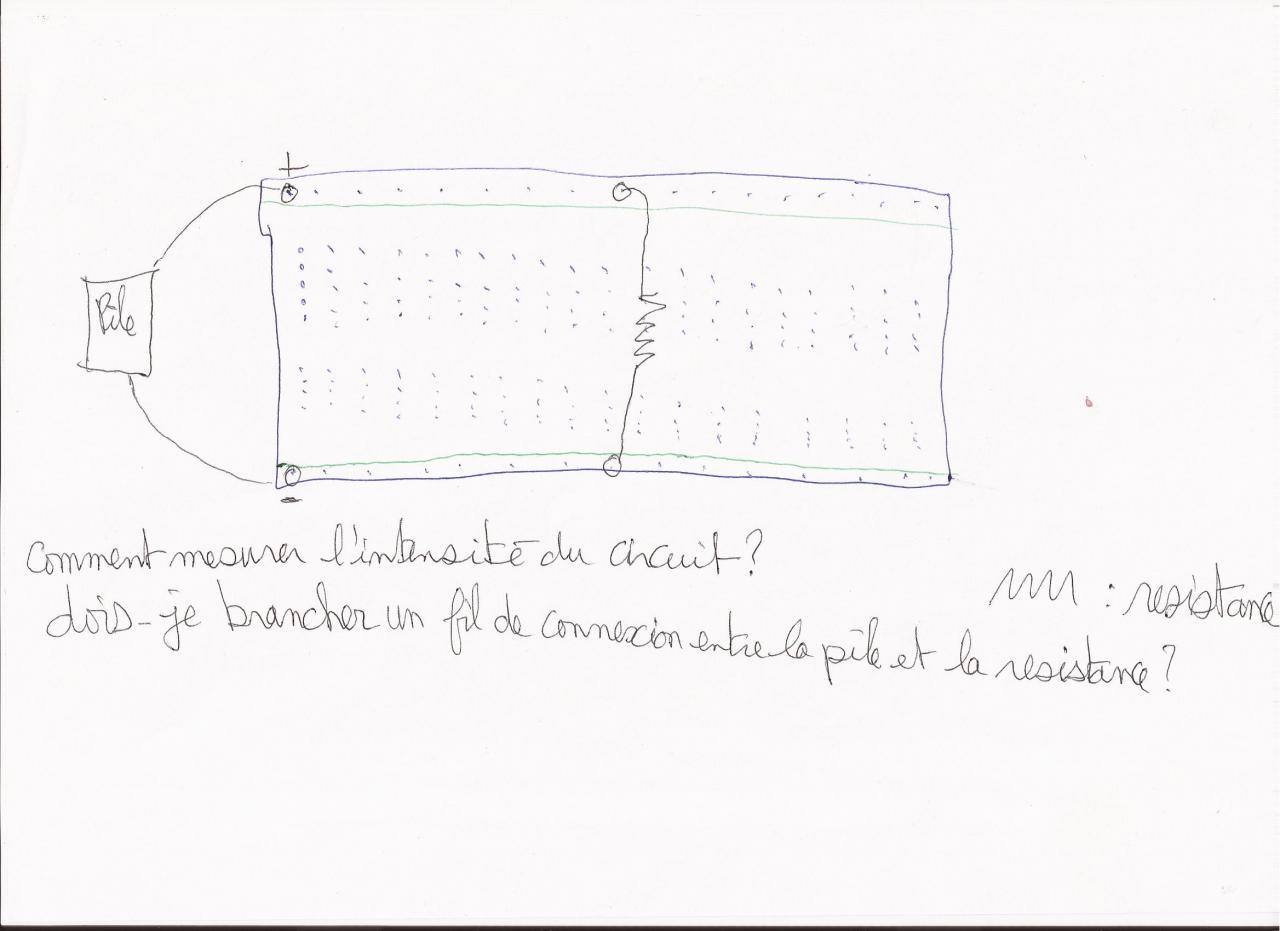 +
Pile
-
comment mesurer l'intensité du circuit?
: resistance
dois-je brancher un fil de connexion entre la pile et la resistance?